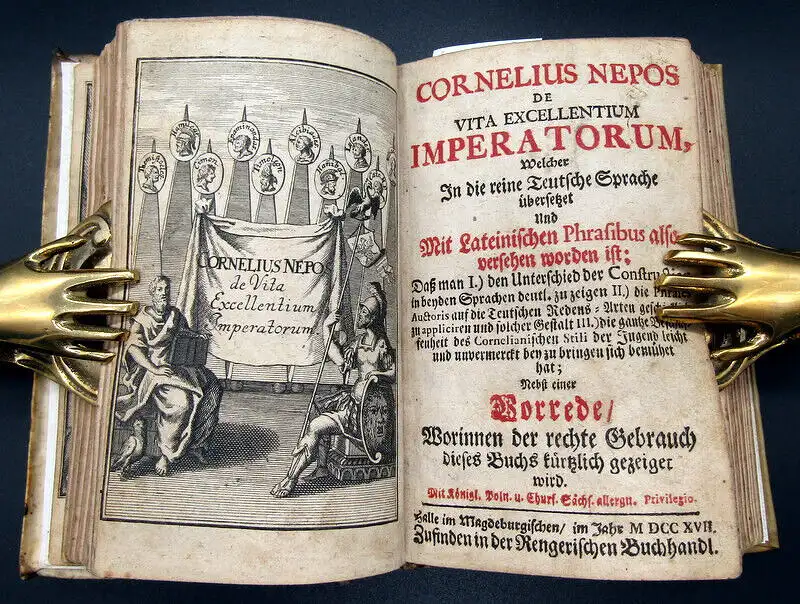 Hamilcar
Epaminondas
Timoleon
CORNELIUS NEPOS
de Vita
Excellentium
Imperatorum.
CORNELIUS NEPOS
DE
VITA EXCELLENTIUM
IMPERATORUM,
Welcher
In die reine Teutsche Sprache
übersetzet
Und
Mit Lateinischen Phrasibus also
versehen worden ist;
Daß man I.) den Unterschied der
in beyden Sprachen deutl. zu zeigen II.) die Phrases
Auctoris auf die Teutschen Redens-Arten
zu appliciren und solcher Gestalt III.) die gantze
fenheit des Cornelianischen Stili der Jugend leicht
und unvermerckt beyzubringen sich bemühet
hat;
Nebst einer
Vorrede/
Worinnen der rechte Gebrauch
dieses Buchs kürtzlich gezeiget
wird.
Mit Königl. Poln. u. Churf. Sächs. allergn. Privilegio.
Halle im Magdeburgischen/ im Jahr M DCC XVII.
Zufinden in der Rengerischen Buchhandl.